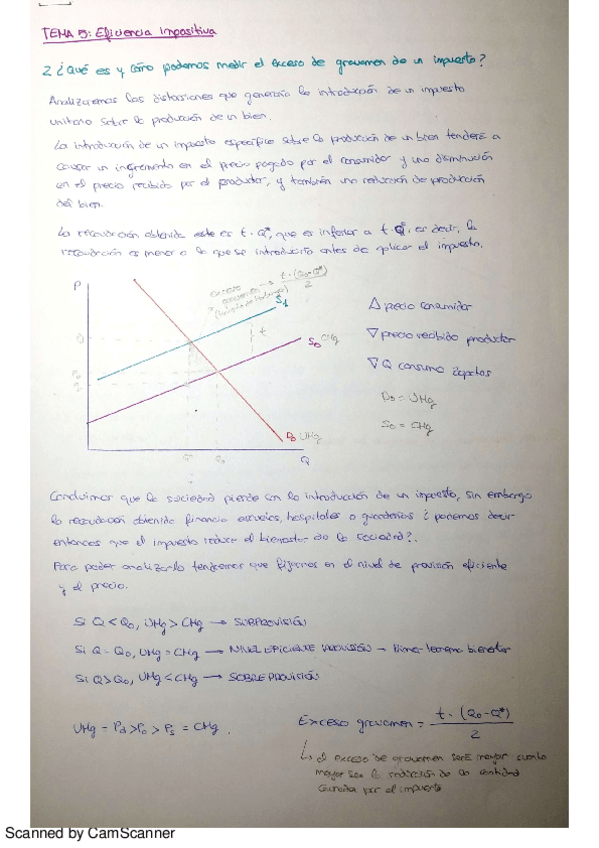 TEMA 5: Eficiencia impositiva
2 ¿Qué es y cómo podemos medir el exceso de gravamen de un impuesto?
Analizaremos las distorsiones que generaría la introducción de un impuesto
unitario sobre la producción de un bien.
La introducción de un impuesto específico sobre la producción de un bien tenderá a
causar un incremento en el precio pagado por el consumidor y una disminución
en el precio recibido por el productor, y también una reducción de producción
del bien.
La recaudación obtenida este es t·Q*, que es inferior a t·Q, es decir, la
recaudación es menor a la que se introduciría antes de aplicar el impuesto.
P
exceso
gravamen → t·(Q0-Q*)
2
S1
t
S0 CMg
D0 UMg
Q* Q0
Q
Δ precio consumidor
∇ precio recibido productor
∇ Q consumo zapatos
D0 = UMg
S0 = CMg
Concluimos que la sociedad pierde con la introducción de un impuesto, sin embargo
la recaudación obtenida financia escuelas, hospitales o guarderías ¿podemos decir
entonces que el impuesto reduce el bienestar de la sociedad?.
Para poder analizarlo tendremos que fijarnos en el nivel de provisión eficiente
y el precio.
Si Q < Q0, UMg > CMg → SUBPROVISIÓN
Si Q = Q0, UMg = CMg → NIVEL EFICIENTE PROVISIÓN - Primer teorema bienestar
Si Q > Q0, UMg < CMg → SOBREPROVISIÓN
UMg = Pd > P0 > Ps = CMg.
Exceso gravamen = t·(Q0-Q*)
2
↳ el exceso de gravamen será mayor cuanto
mayor sea la reducción de la cantidad
causada por el impuesto
Scanned by CamScanner